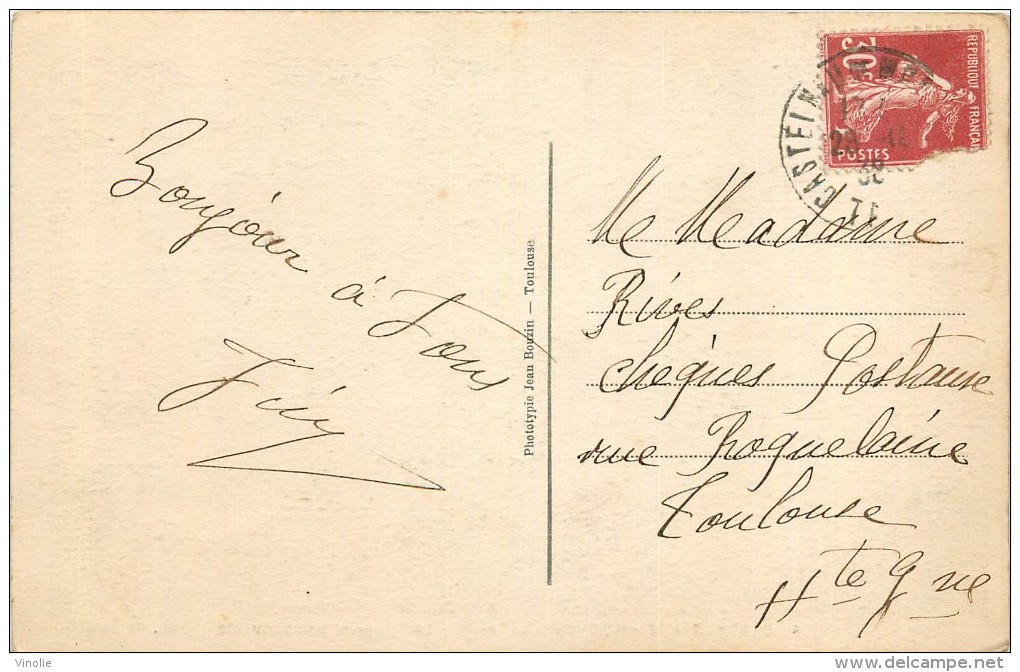 Bonjour
à Tous
Phototypie Jean Bouzin — Toulouse
REPUBLIQUE FRANÇAI
30c
POSTES
CASTELNAU
28
11
Me Madame
Rives
chèques Postaux
rue Roquelaine
Toulouse
Hte Gne
Vinolie
www.delcampe.net